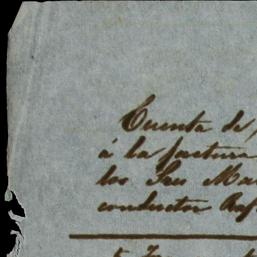 Cuenta de
á la factura
los Sres Ma
conductor